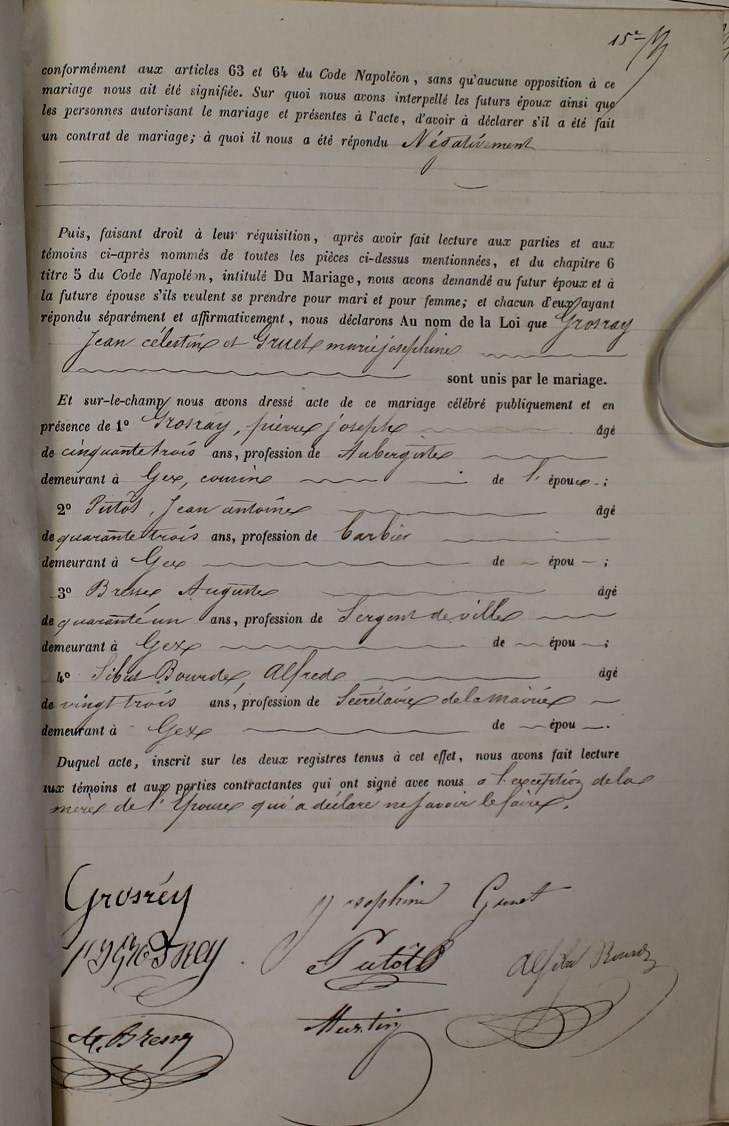 15e
conformément aux articles 63 et 64 du Code Napoléon, sans qu'aucune opposition à ce
mariage nous ait été signifiée. Sur quoi nous avons interpellé les futurs époux ainsi que
les personnes autorisant le mariage et présentes à l'acte, d'avoir à déclarer s'il a été fait
un contrat de mariage; à quoi il nous a été répondu Négativement
Puis, faisant droit à leur réquisition, après avoir fait lecture aux parties et aux
témoins ci-après nommés de toutes les pièces ci-dessus mentionnées, et du chapitre 6
titre 5 du Code Napoléon, intitulé Du Mariage, nous avons demandé au futur époux et à
la future épouse s'ils veulent se prendre pour mari et pour femme; et chacun d'eux ayant
répondu séparément et affirmativement, nous déclarons Au nom de la Loi que Grosray
Jean célestin et Gruet marie josephine
sont unis par le mariage.
Et sur-le-champ nous avons dressé acte de ce mariage célébré publiquement et en
présence de 1o Grosray, pierre joseph âgé
de cinquante trois ans, profession de Aubergiste
demeurant à Gex, cousin de l'époux ;
2o Putôt, Jean antoine âgé
de quarante trois ans, profession de barbier
demeurant à Gex de épou ;
3o Bresse Auguste âgé
de quarante un ans, profession de Sergent de ville
demeurant à Gex de épou ;
4o Sibut Bourde, Alfred âgé
de vingt trois ans, profession de Secrétaire de la mairie
demeurant à Gex de épou .
Duquel acte, inscrit sur les deux registres tenus à cet effet, nous avons fait lecture
aux témoins et aux parties contractantes qui ont signé avec nous à l'exception de la
mère de l'Epouse qui a déclaré ne savoir le faire.
Grosréy Josephine Gruet
Putôt
A. Bresse Martin